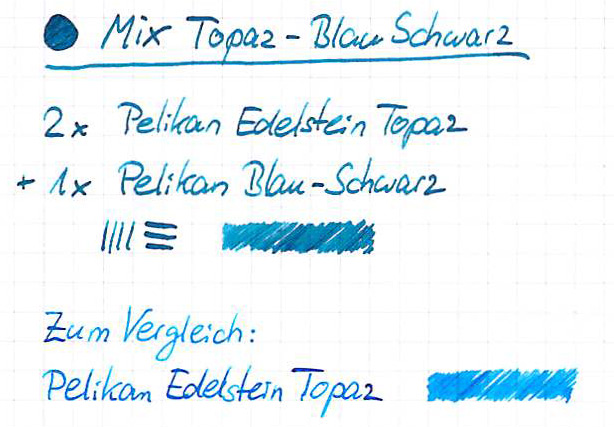 Mix Topaz - Blau Schwarz
2x Pelikan Edelstein Topaz
+ 1x Pelikan Blau-Schwarz
Zum Vergleich:
Pelikan Edelstein Topaz